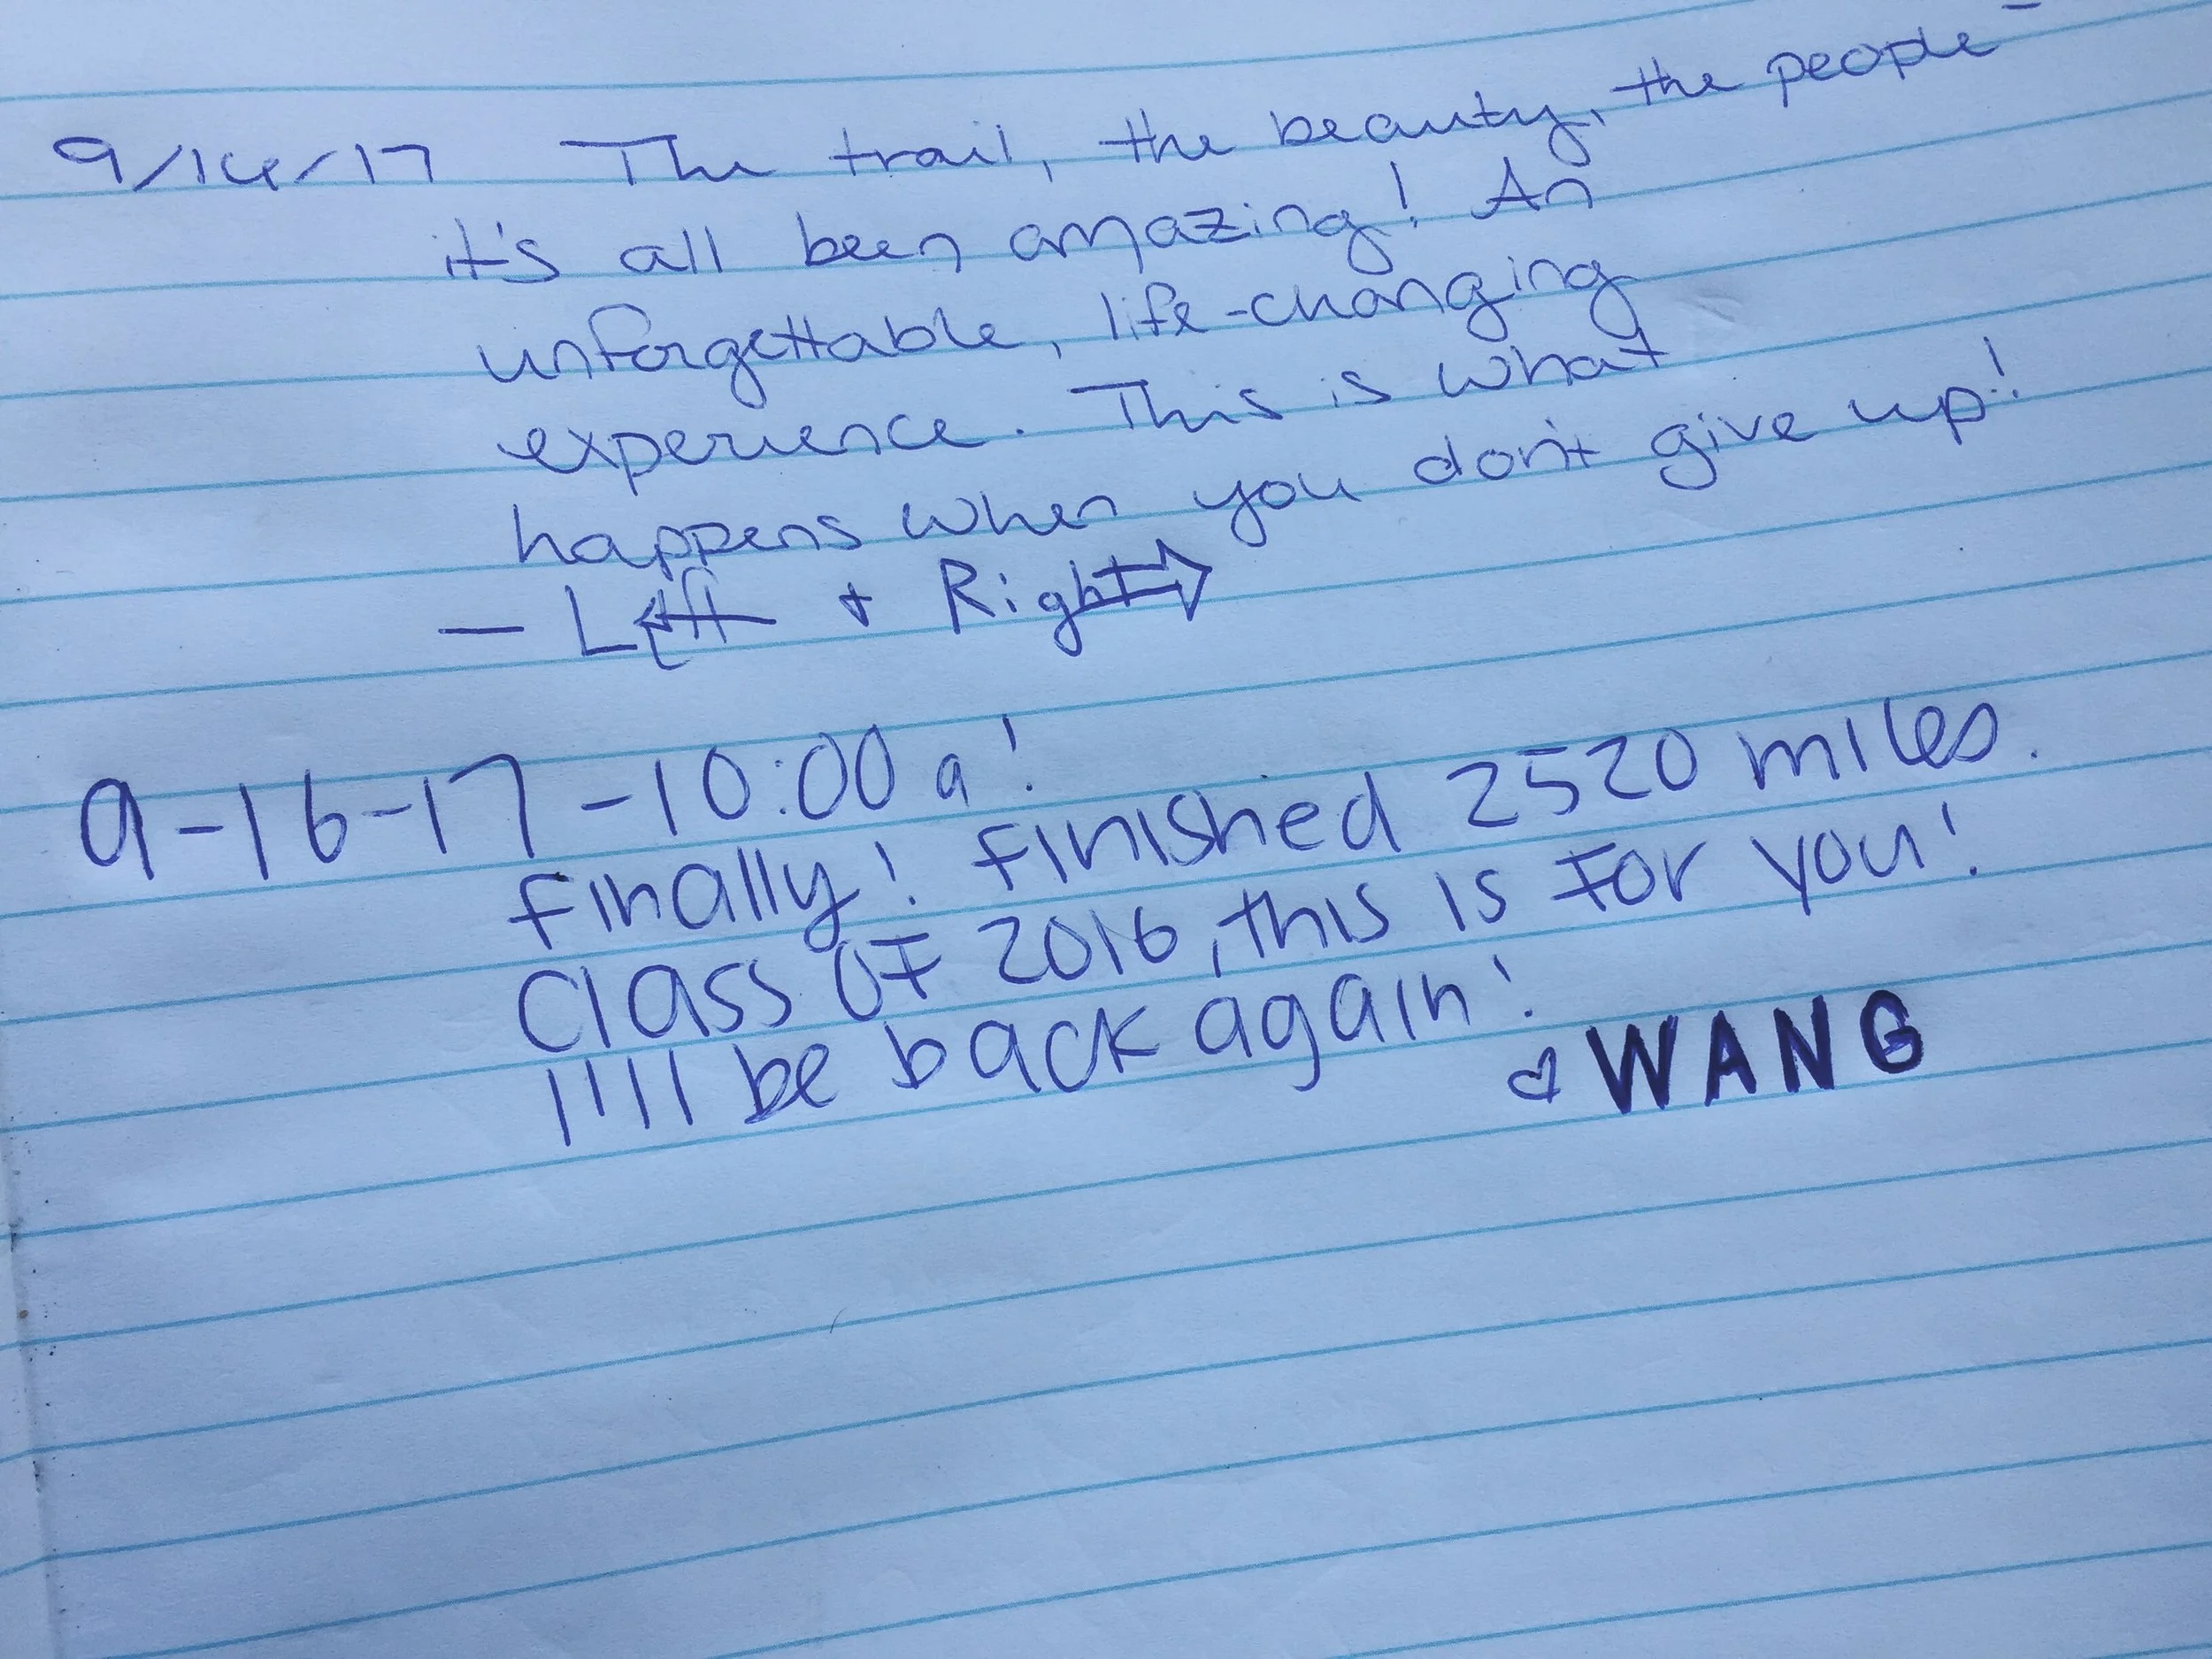 9/14/17 The trail, the beauty, the people -
it's all been amazing! An
unforgettable, life-changing
experience. This is what
happens when you don't give up!
— Left + Right
9-16-17-10:00a!
Finally! Finished 2520 miles.
Class of 2016, this is for you!
I'll be back again!
♡ WANG